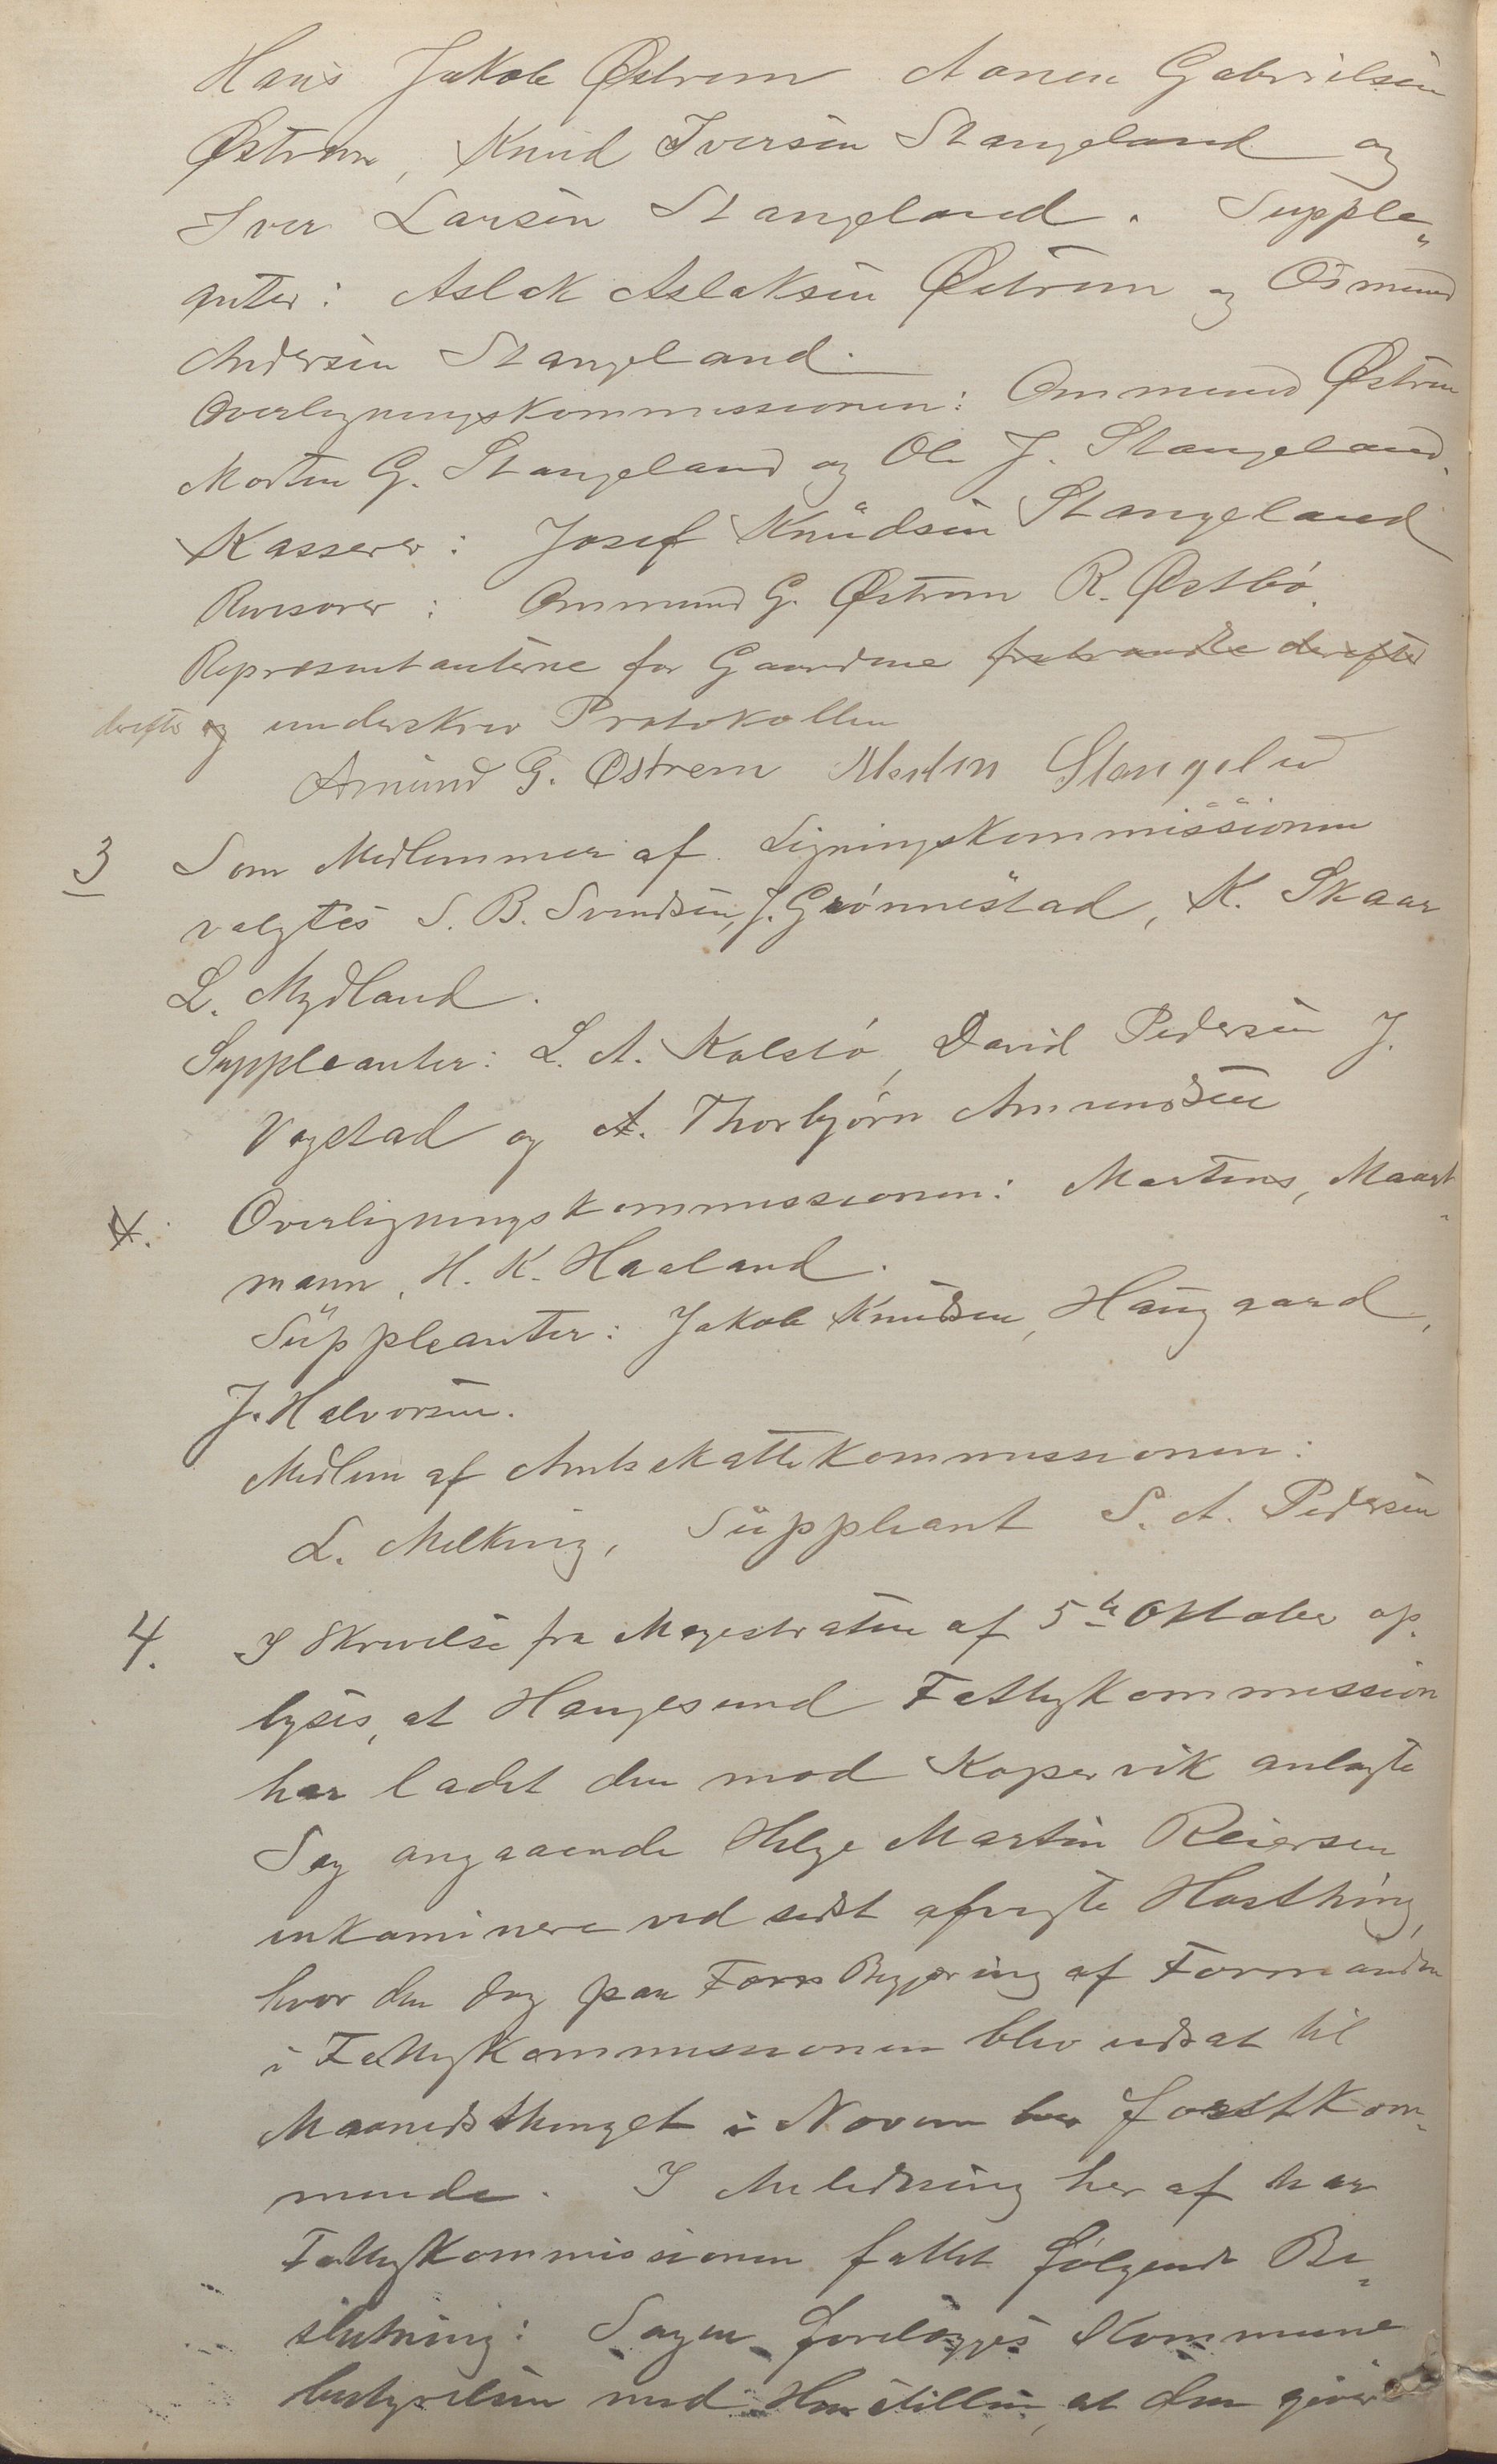 Hans Jakob Østrem Aanen Gabrielsen
Østrem, Knud Iversen Stangeland og
Iver Larsen Stangeland. Supple„
anter: Aslak Aslaksen Østrem og Osmund
Andersen Stangeland.
Overligningskommissionen: Ommund Østrem
Morten G. Stangeland og Ole J. Stangeland.
Kasserer: Josef Knudsen Stangeland
Revisorer: Ommund G. Østrem R. Østbö.
Repræsentanterne for Gaardene fratraadte derefter
derefter og underskrev Protokollen
Amund G. Østrem Morten Stangelnd
3 Som Medlemmer af Ligningskommissionen
valgtes S. B. Svendsen, J. Grönnestad, K. Skaar
L. Mydland.
Suppleanter: L. A. Kalstö, David Pedersen J.
Vagstad og A. Thorbjörn Amundsen
4. Overligningskommissionen: Martens, Maart-
mann, H. K. Haaland.
Suppleanter: Jakob Knudsen, Haugaard,
J. Halvorsen.
Medlem af Amtsskattekommissionen:
L. Milking, Suppleant S. A. Pedersen
4. I Skrivelse fra Magistraten af 5te Oktober op-
lyses, at Haugesund Fattigkommission
har ladet den mod Kopervik anlagte
Sag angaaende Helge Martin Reiersen
inkaminere ved sidst afvigte Høstthing,
hvor den dog paa Fors Begjæring af Formanden
i Fattigkommissionen blev udsat til
Maanedsthinget i November førstkom-
mende. I Anledning her af har
Fattigkommissionen fattet følgende Be„
slutning: Sagen forelægges Kommune
bestyrelsen med Henstillen, at den giver